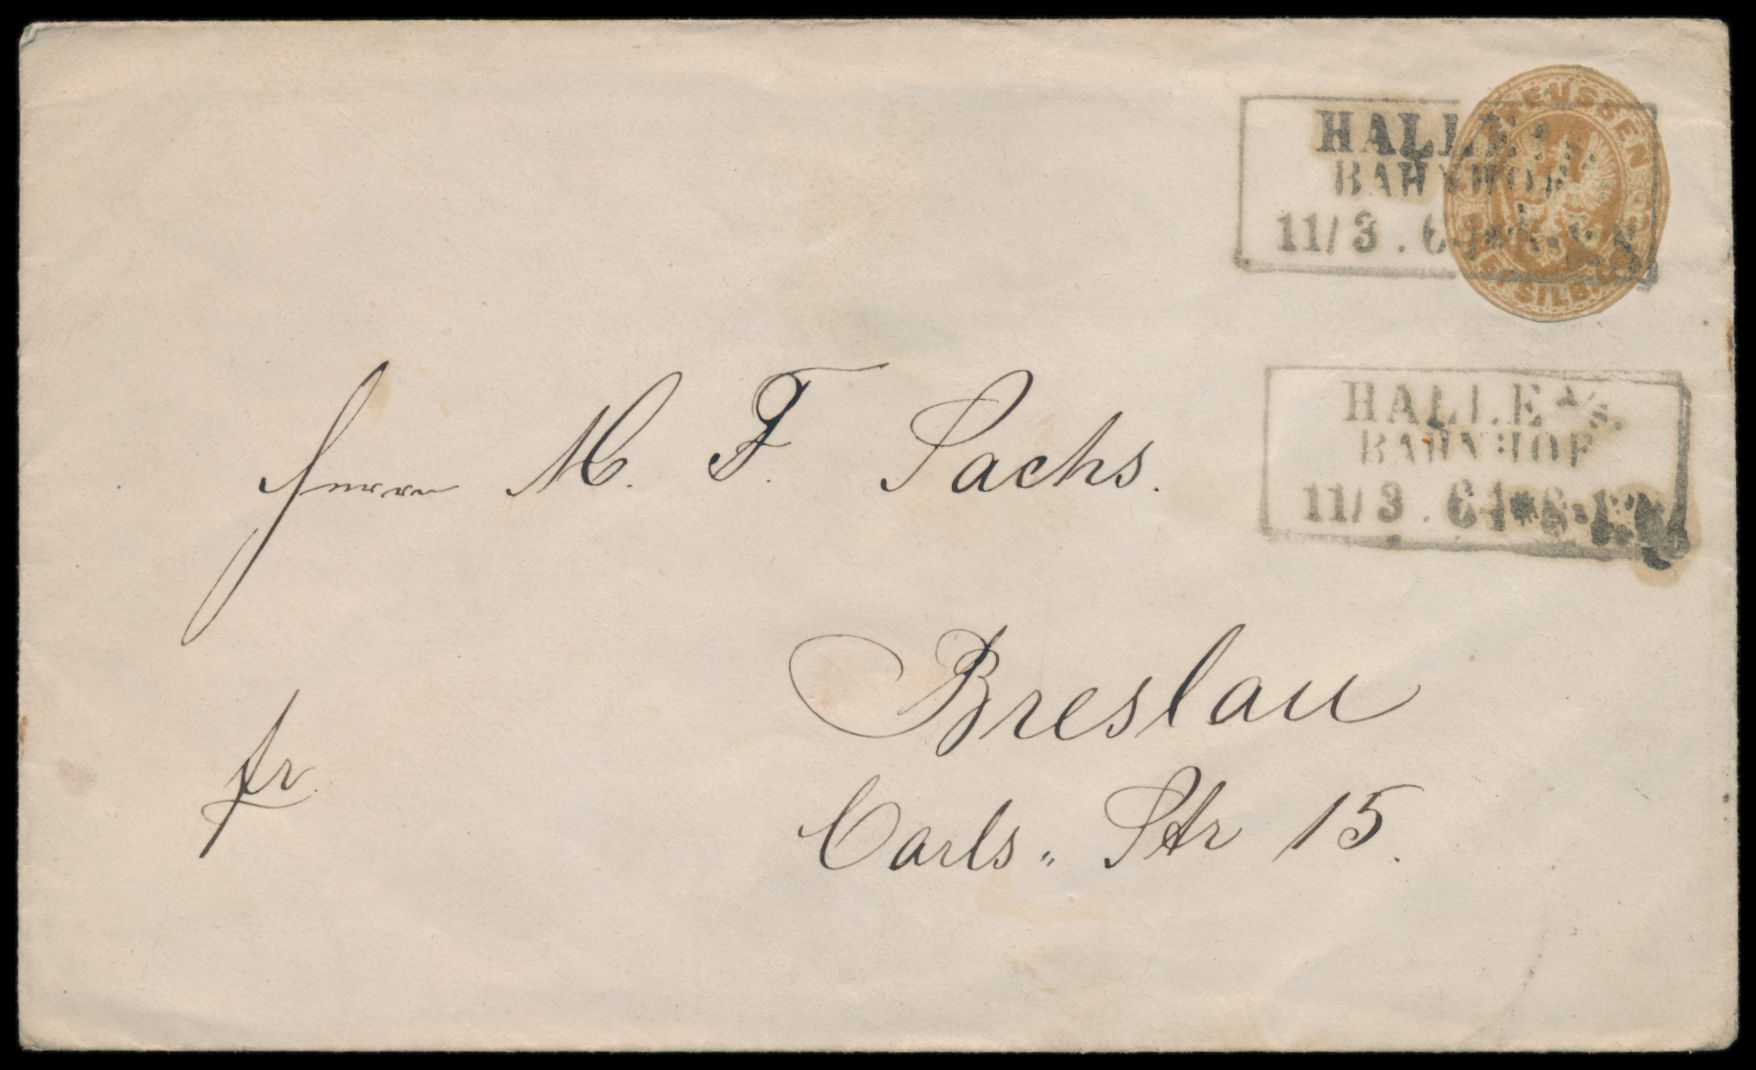 PREUSSEN
SILB. GR.
HALLE
BAHNHOF
11/3. 64
HALLE A/S.
BAHNHOF
11/3. 64 * 8-12
Herrn M. F. Sachs.
Breslau
fr.
Carls„ Str 15.